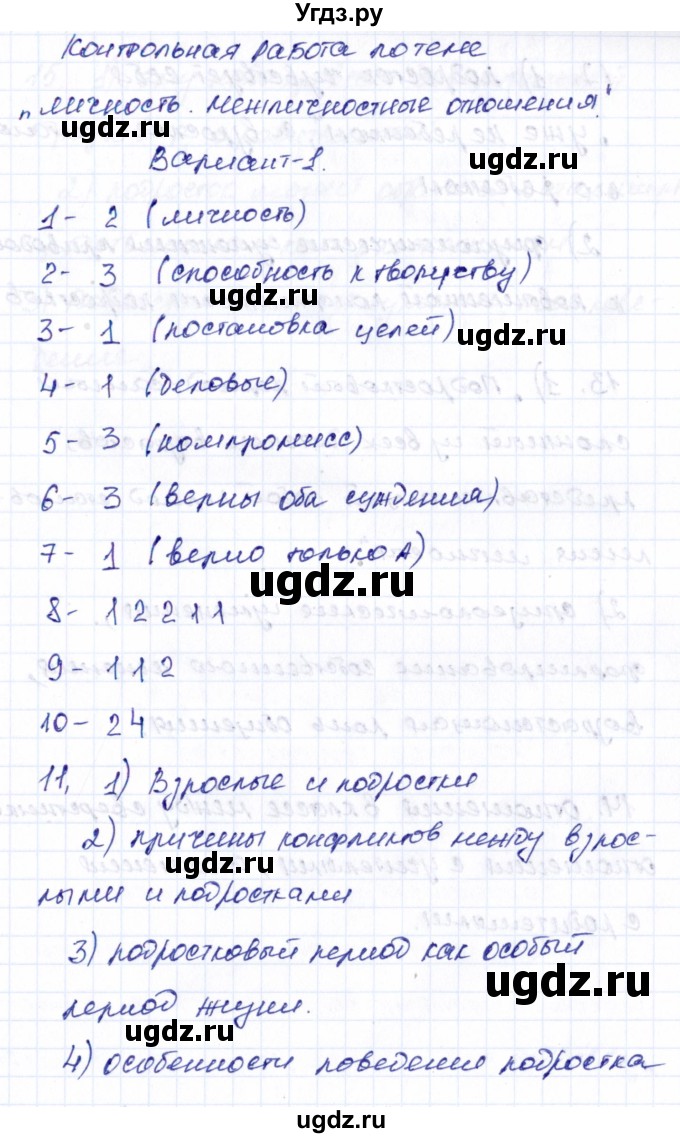 Угдз.ру
Контрольная работа по теме
"Личность. Межличностные отношения"
ugdz.ru
ugdz.ru
Вариант-1.
1- 2 (личность)
2- 3 (способность к творчеству)
ugdz.ru
3- 1 (постановка целей)
ugdz.ru
4-1 (деловые)
5-3 (компромисс)
ugdz.ru
6- 3 (верны оба суждения)
7- 1 (верно только А)
ugdz.ru
8- 12211
9-112
10- 24
ugdz.ru
11. 1) Взрослые и подростки
2) причины конфликтов между взрос-
ugdz.ru
лыми и подростками
3) подростковый период как особый
ugdz.ru
период жизни.
ugdz.ru
4) особенности поведения подростка
ugdz.ru